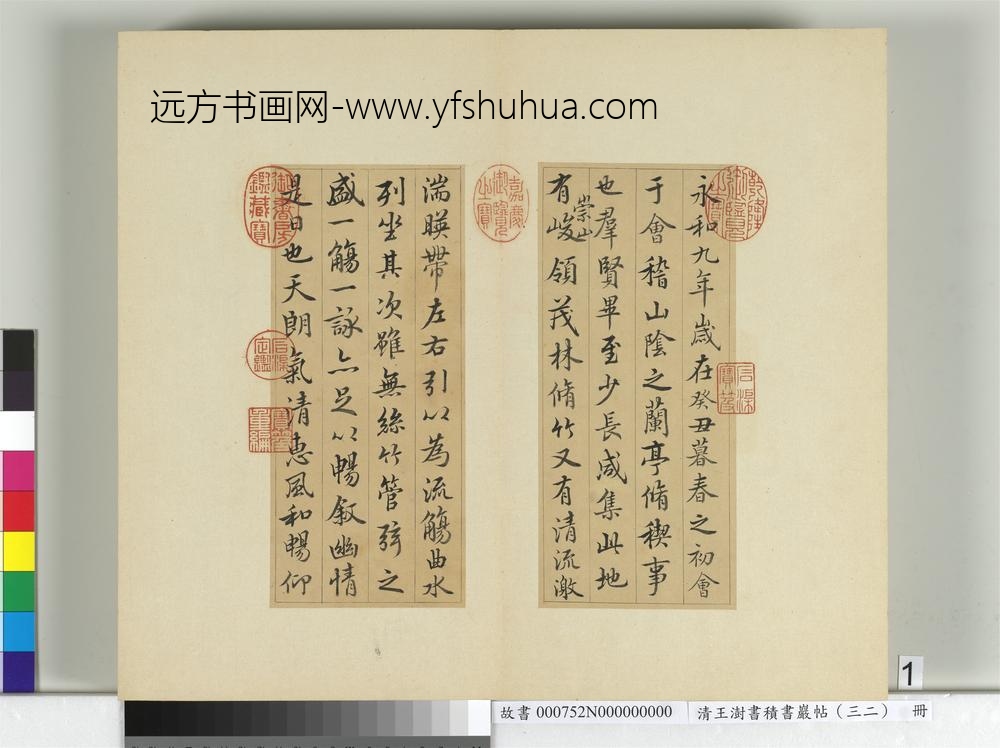 远方书画网-www.yfshuhua.com
永和九年歲在癸丑暮春之初會
于會稽山陰之蘭亭脩稧事
也羣賢畢至少長咸集此地
有崇山峻領茂林脩竹又有清流激
湍暎帶左右引以為流觴曲水
列坐其次雖無絲竹管弦之
盛一觴一詠亦足以暢敘幽情
是日也天朗氣清惠風和暢仰
乾隆御覽之寶
嘉慶御覽之寶
御書房鑑藏寶
石渠寶笈
石渠定鑑
寶笈重編
1
故書 000752N000000000
清王澍書積書巖帖（三二） 冊